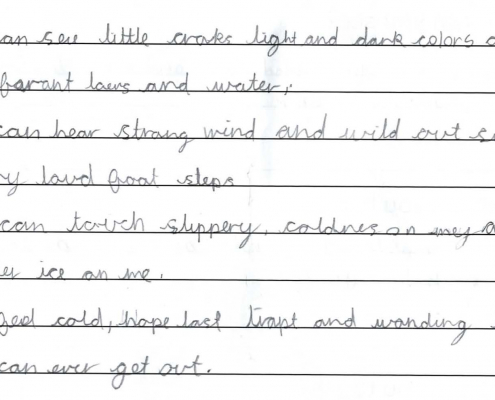 an see little craks light and dark colors
ferant laers and water,
can hear strang wind and wild out s
y loud foot steps
can touch slippery, coldnes on mey
er ice on me.
feel cold, hope last trapt and wanding
can ever get out.